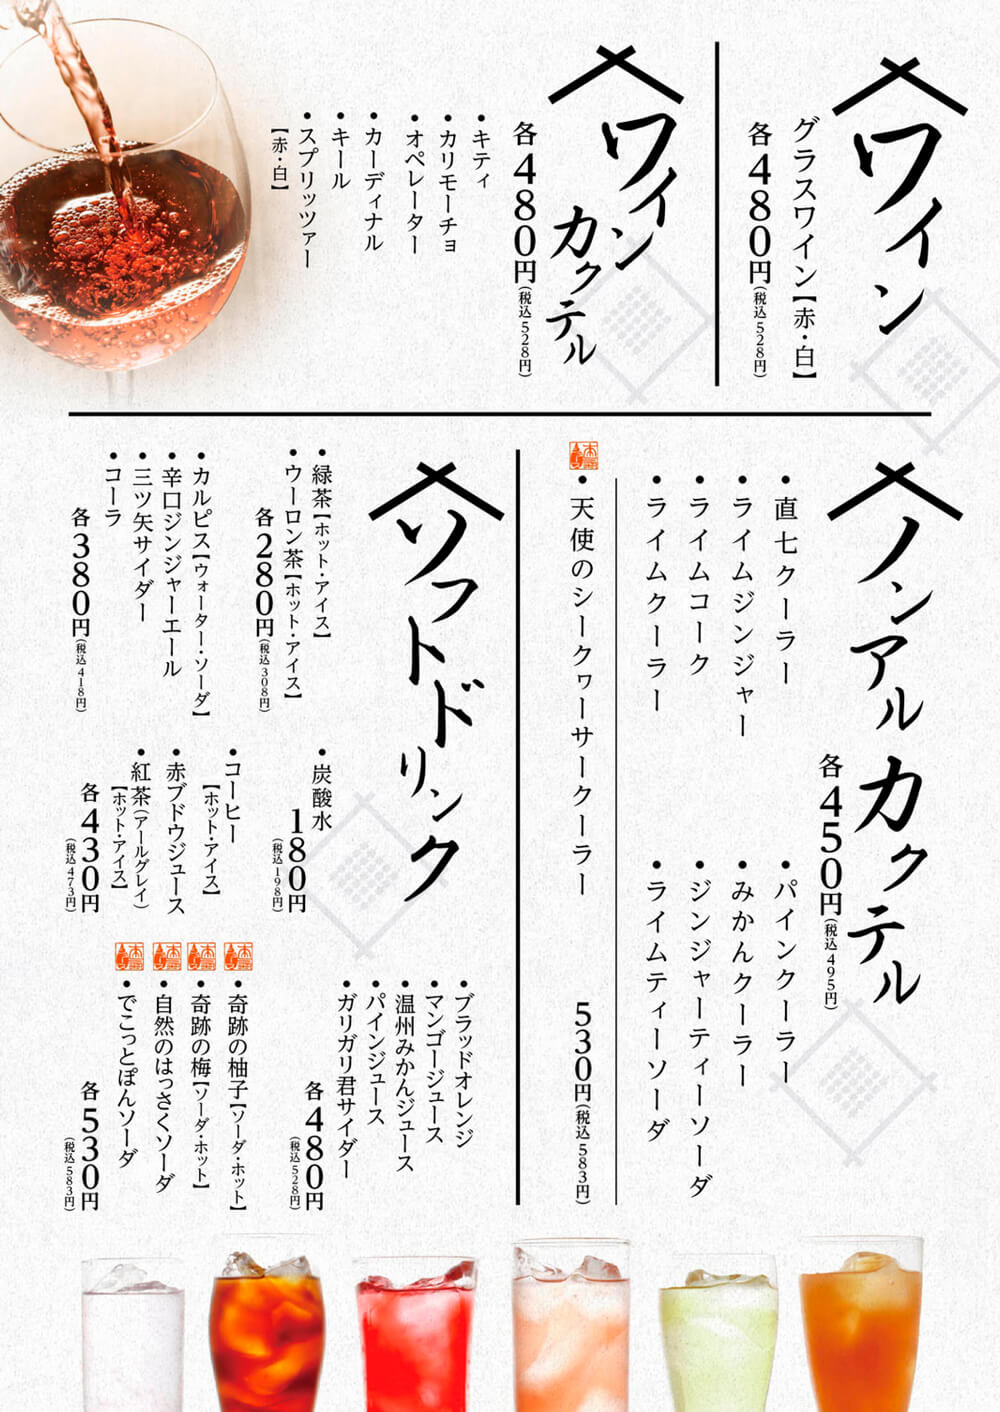 ワイン
グラスワイン【赤・白】
各480円(税込528円)
ワインカクテル
各480円(税込528円)
・キティ
・カリモーチョ
・オペレーター
・カーディナル
・キール
・スプリッツァー
【赤・白】
ノンアルカクテル
各450円(税込495円)
・直七クーラー
・ライムジンジャー
・ライムコーク
・ライムクーラー
・パインクーラー
・みかんクーラー
・ジンジャーティーソーダ
・ライムティーソーダ
・天使のシークヮーサークーラー 530円(税込583円)
ソフトドリンク
・緑茶【ホット・アイス】
・ウーロン茶【ホット・アイス】
各280円(税込308円)
・カルピス【ウォーター・ソーダ】
・辛口ジンジャーエール
・三ツ矢サイダー
・コーラ
各380円(税込418円)
・炭酸水
180円(税込198円)
・コーヒー
【ホット・アイス】
・赤ブドウジュース
・紅茶(アールグレイ)
【ホット・アイス】
各430円
(税込473円)
・ブラッドオレンジ
・マンゴージュース
・温州みかんジュース
・パインジュース
・ガリガリ君サイダー
各480円
(税込528円)
・奇跡の柚子【ソーダ・ホット】
・奇跡の梅【ソーダ・ホット】
・自然のはっさくソーダ
・でこっとぽんソーダ
各530円
(税込583円)